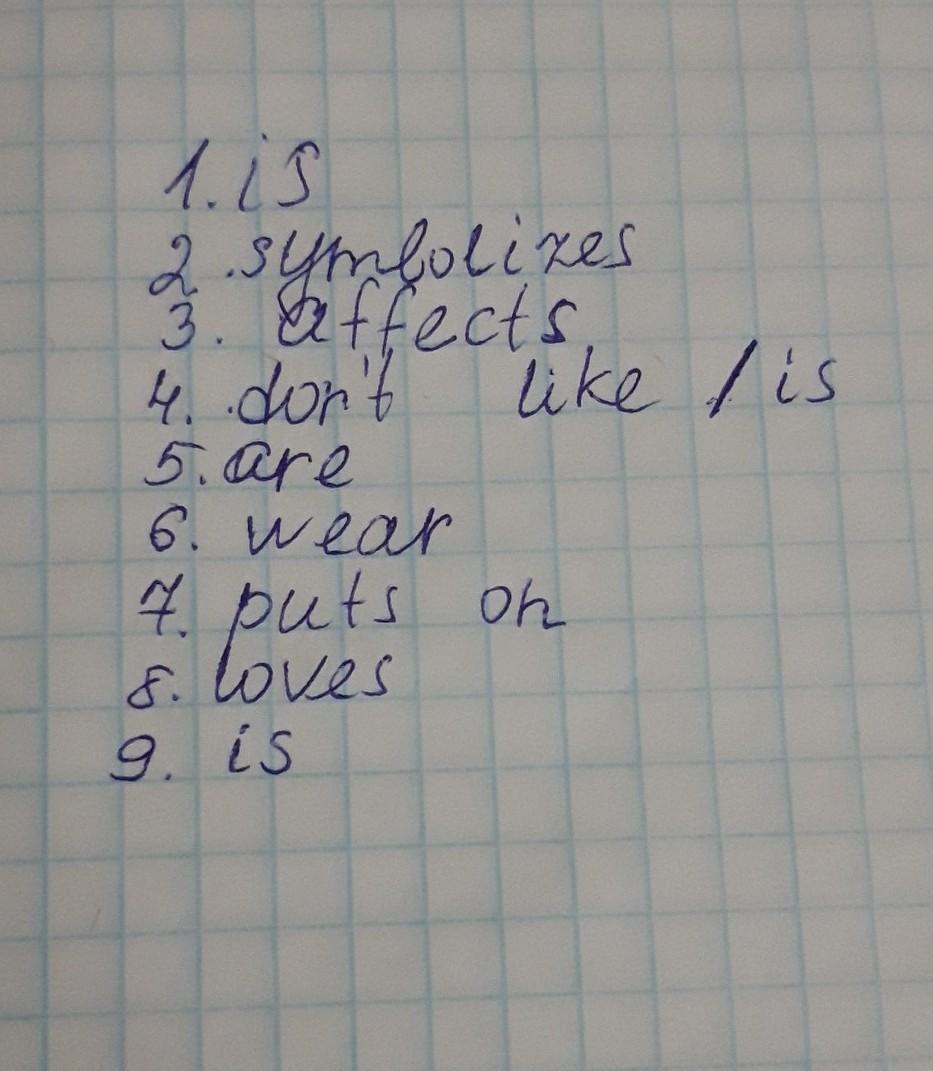 1. is
2. symbolizes
3. affects
4. don't like / is
5. are
6. wear
7. puts on
8. loves
9. is